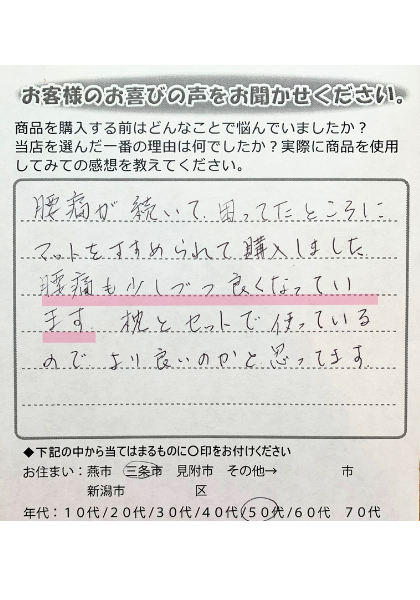 お客様のお喜びの声をお聞かせください。
商品を購入する前はどんなことで悩んでいましたか？
当店を選んだ一番の理由は何でしたか？実際に商品を使用
してみての感想を教えてください。
腰痛が続いて、困ってたところに
マットをすすめられて購入しました
腰痛も少しづつ良くなってい
ます。枕とセットで使っている
ので、より良いのかと思ってます。
◆下記の中から当てはまるものに〇印をお付けください
お住まい：燕市 三条市 見附市 その他→ 市
新潟市 区
年代：１０代/２０代/３０代/４０代/５０代/６０代 ７０代